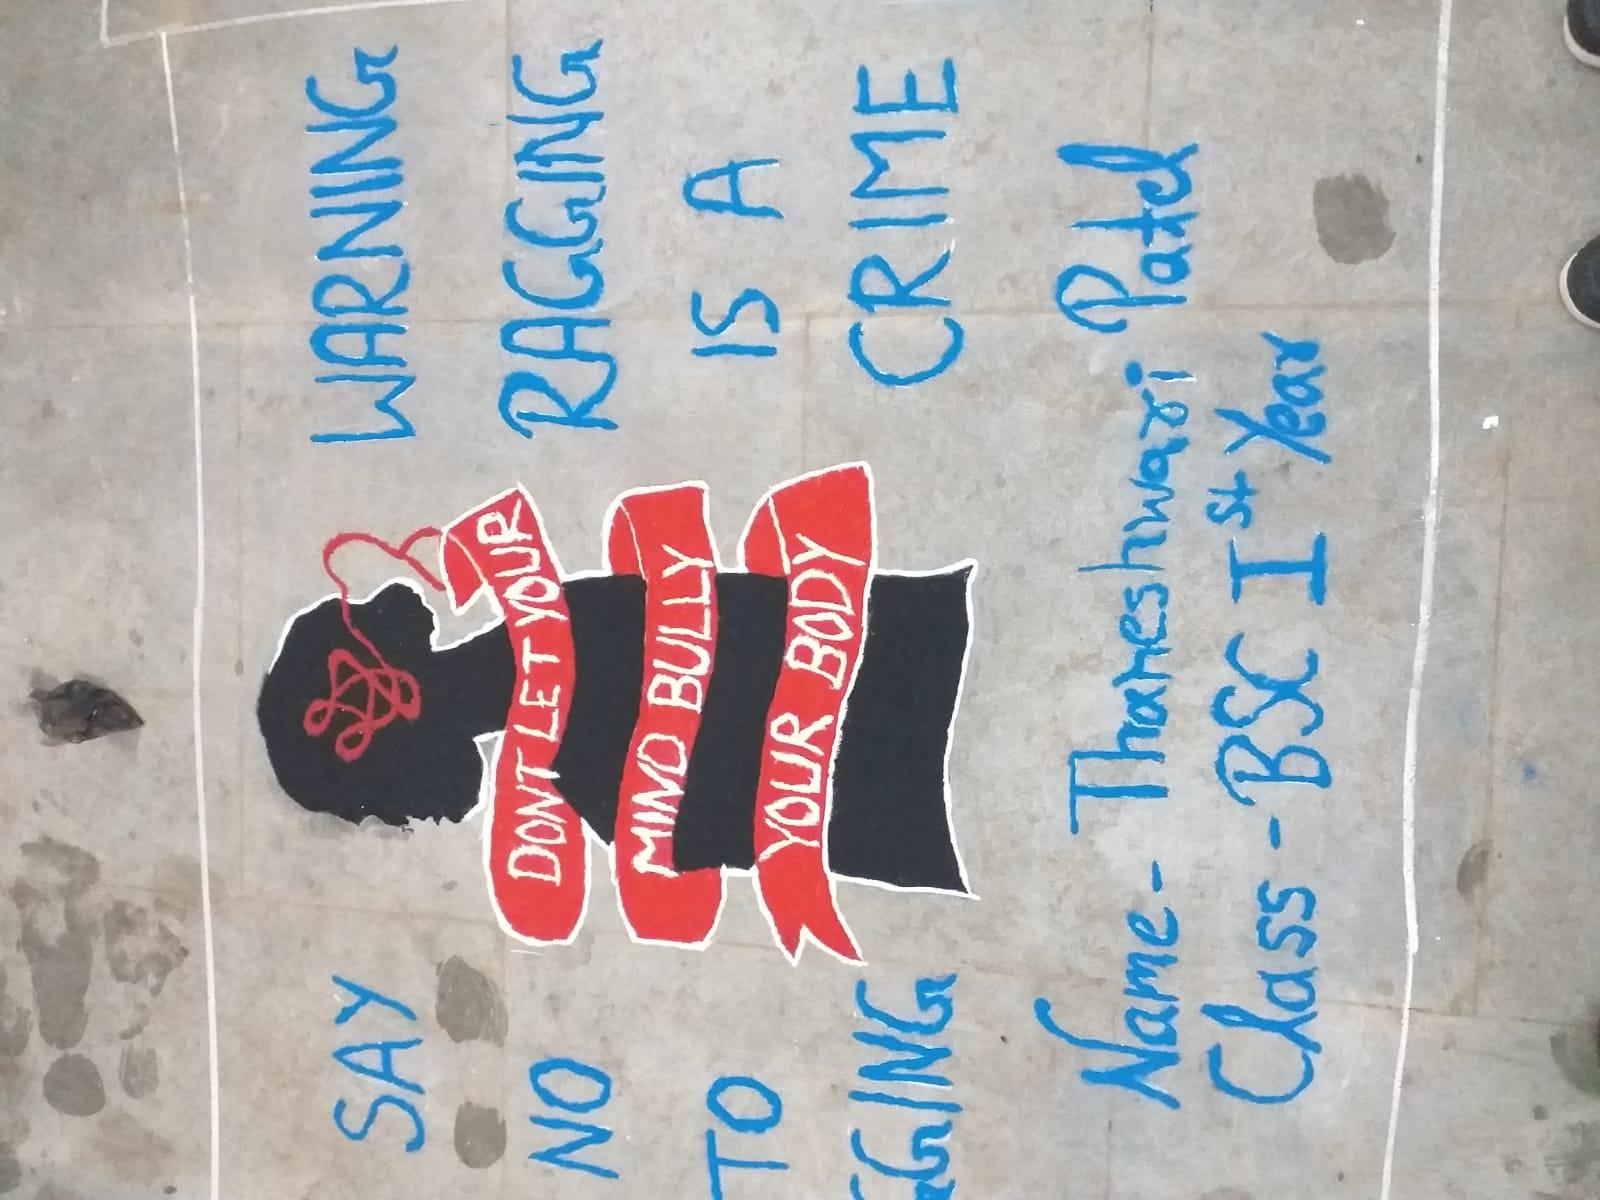 SAY
NO
TO
GGING
DONT LET YOUR
MIND BULLY
YOUR BODY
WARNING
RAGGING
IS A
CRIME
Name - Thaneshwari Patel
Class - BSC Ist Year